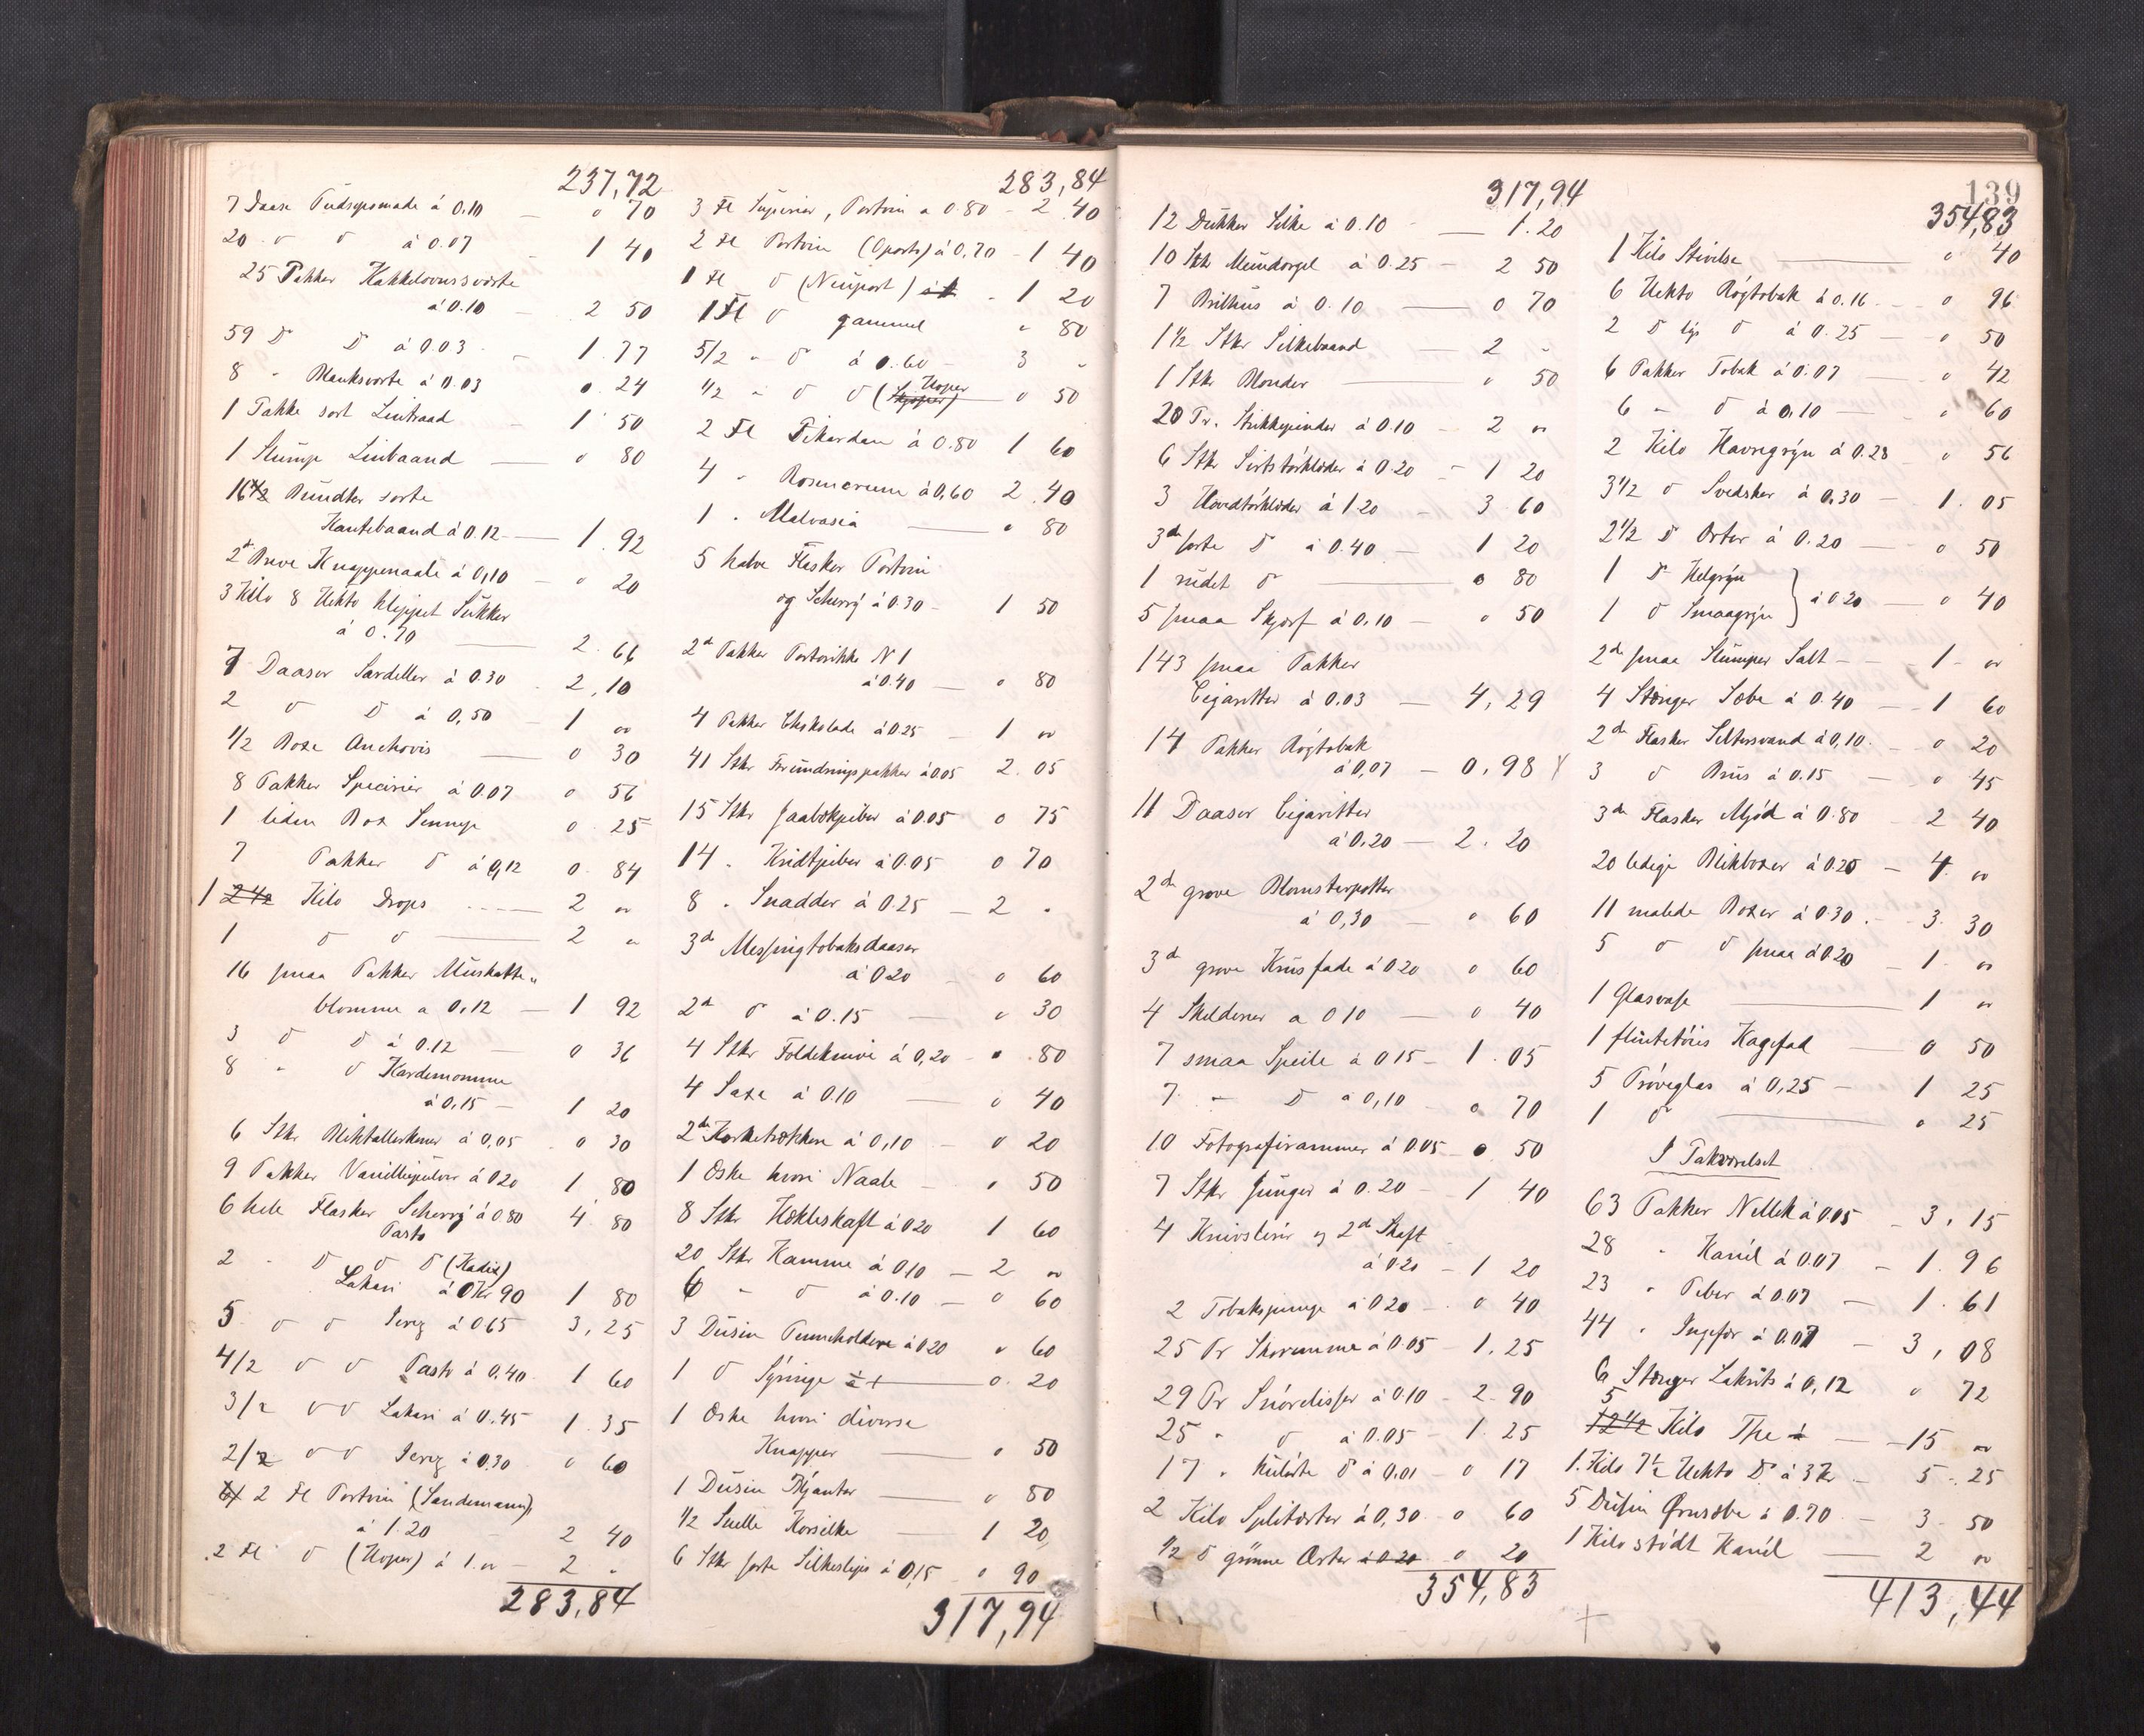 237,72
7 Daase Pudsepomade á 0.10 — 0 70
20 " " á 0.07 1 40
25 Pakker Kakkelovnssværte
á 0.10 — 2 50
59 D D á 0.03 — 1.77
8 - Blanksværte á 0.03 0.24
1 Pakke sort Lintraad 1 50
1 Stump Linbaand — 0 80
16 Bundter sorte
Kantebaand á 0.12 — 1.92
2 Breve Knappenaale á 0,10 — 0 20
3 Kilo 8 Hekto klippet Sukker
á 0.70 — 2.66
7 Daaser Sardeller á 0.30 - 2,10
2 D D á 0,50 - 1 00
1/2 Boxe Anchovis — 0 30
8 Pakker Specirier á 0.07 0 56
1 liden Box Sennep 0.25
7 Pakker D á 0,12 0.84
1 2 1/2 Kilo Drops — 2 00
1 D D — 2 "
16 smaa Pakker Muskatte„
blomme a 0.12 — 1 92
3 D D á 0.12 — 0 36
8 - D Kardemomme
á 0,15 — 1 20
6 Stkr Bliktallerkener á 0,05 0 30
9 Pakker Vanillepulver á 0 20 1 80
6 hele Flasker Scherry á 0 80 4 80
Pasto
2 - D D D (Kadix)
Lakari á 0 Kr 90 1 80
5 D D Serez á 0 65 3,25
4/2 D D Pasto á 0,40 1 60
3/2 D D Lakari á 0.45 1.35
2/2 D D Serez á 0.30 0 60
2 Fl Portvin (Sandemann)
á 1.20 2 40
2 Fl D (Hoper) á 1.00 — 2 "
283,84
283,84
3 Fl Superior, Portvin a 0.80 - 2 40
2 Fl Portvin (Oporto) á 0,70 - 1 40
1 Fl D (Neuport) - 1 20
1 Fl D gammel " 80
5/2 - D á 0.60 — 3 -
1/2 - D D (Hoper) 0 50
2 Fl Pikardan á 0.80 1 60
4 - Rosmarum á 0,60 2.40
1 - Malvasia — 0 80
5 halve Flasker Portvin
og Scherry á 0.30 - 1 50
2 Pakker Portorikke N 1
á 0.40 — 0 80
4 Pakker Chokolade á 0.25 - 1 00
41 Stkr Forundringspakker á 0.05 2.05
15 Stkr Jaabækpiber á 0.05 0 75
14 - Kridtpiber á 0.05 0 70
8 - Snadder á 0.25 — 2 -
3de Messingtobaksdaaser
á 0 20 — 0 60
2 D á 0.15 — 0 30
4 Stkr Foldeknive á 0,20 - 0.80
4 Saxe á 0.10 — 0 40
2de Korketrækkere á 0,10 — 0 20
1 Æske hvori Naale — 0 50
8 Stkr Hækleskaft á 0 20 1 60
20 Stkr Kamme á 0.10 — 2 00
6 - D á 0.10 — 0 60
3 Dusin Penneholdere á 0 20 0 60
1 D Syringe — 0.20
1 Æske hvori diverse
Knapper — 0 50
1 Dusin Blyanter — 0 80
1/2 Snelle Korsilke — 1 20
6 Stkr sorte Silkeslips á 0,15 - 0 90
317,94
317,94
12 Dukker Silke á 0.10 — 1.20
10 Stkr Mundorgel á 0.25 - 2 50
7 Brilhus á 0.10 — 0 70
1 1/2 Stkr Silkebaand — 2 -
1 Stkr Blonder — 0 50
20 Pr. Strikkepinder á 0.10 - 2 00
6 Stkr Sirtstørklæder á 0.20 - 1 20
3 Hovedtørklæder á 1 20 - 3 60
3de sorte D á 0.40 — 1 20
1 rudet D — 0 80
5 smaa Skjærf á 0,10 — 0 50
143 smaa Pakker
Cigaretter á 0.03 — 4,29
14 Pakker Røgtobak
á 0,07 — 0.98
11 Daaser Cigaretter
á 0,20 — 2.20
2de grove Blomsterpotter
á 0,30 — 0 60
3de grove Krusfade á 0 20 0 60
4 Skeldener a 0 10 — 0 40
7 smaa Speile á 0 15 - 1.05
7 - D á 0,10 - 0 70
10 Fotografirammer á 0 05 - 0 50
7 Stkr Punger á 0.20 - 1 40
4 Knivslirer og 2de Skaft
á 0 20 — 1 20
2 Tobakspunge á 0 20 - 0 40
25 Pr Skoremme á 0.05 - 1,25
29 Pr Snørelisser á 0.10 - 2.90
25 - D á 0.05 - 1.25
17 - kulørte D á 0,01 - 0 17
2 Kilo Spliterter á 0,30 - 0 60
1/2 D grønne Ærter á 0 20 0 20
354,83
139
354,83
1 Kilo Stivelse — 0 40
6 Hekto Røgtobak á 0.16 - 0 96
2 D lys D á 0.25 — 0 50
6 Pakker Tobak á 0.07 — 0 42
6 - D á 0,10 — 0 60
2 Kilo Havregryn á 0.28 0 56
3 1/2 D Svedsker á 0,30 - 1.05
2 1/2 D Ærter á 0.20 — 0 50
1 D Helgryn
1 D Smaagryn } á 0 20 — 0 40
2de smaa Stumper Salt — 1 - 00
4 Stænger Sæbe á 0.40 — 1 60
2de Flasker Seltersvand á 0,10 - 0 20
3 D Brus á 0.15 — 0 45
3de Flasker Mjød á 0.80 - 2 40
20 ledige Blikboxer á 0.20 - 4 00
11 malede Boxer á 0.30 - 3.30
5 D D smaa á 0 20 - 1 - 00
1 Glasvase — 1 00
1 flintetøies Kagefad — 0 50
5 Prøveglas á 0,25 — 1 25
1 D — 0 25
I Pakværelset
63 Pakker Nellik á 0.05 - 3,15
28 - Kanél á 0.07 - 1.96
23 - Peber á 0.07 — 1.61
44 - Ingefær á 0.07 — 3,08
6 Stænger Lakrits á 0,12 0 72
5
12 1/2 Kilo The á — 15 00
1 Kilo 7 1/2 Hekto D á 3 Kr - 5.25
5 Dusin Ørnsæbe á 0.70 — 3.50
1 Kilo stødt Kanél — 2 00
413,44